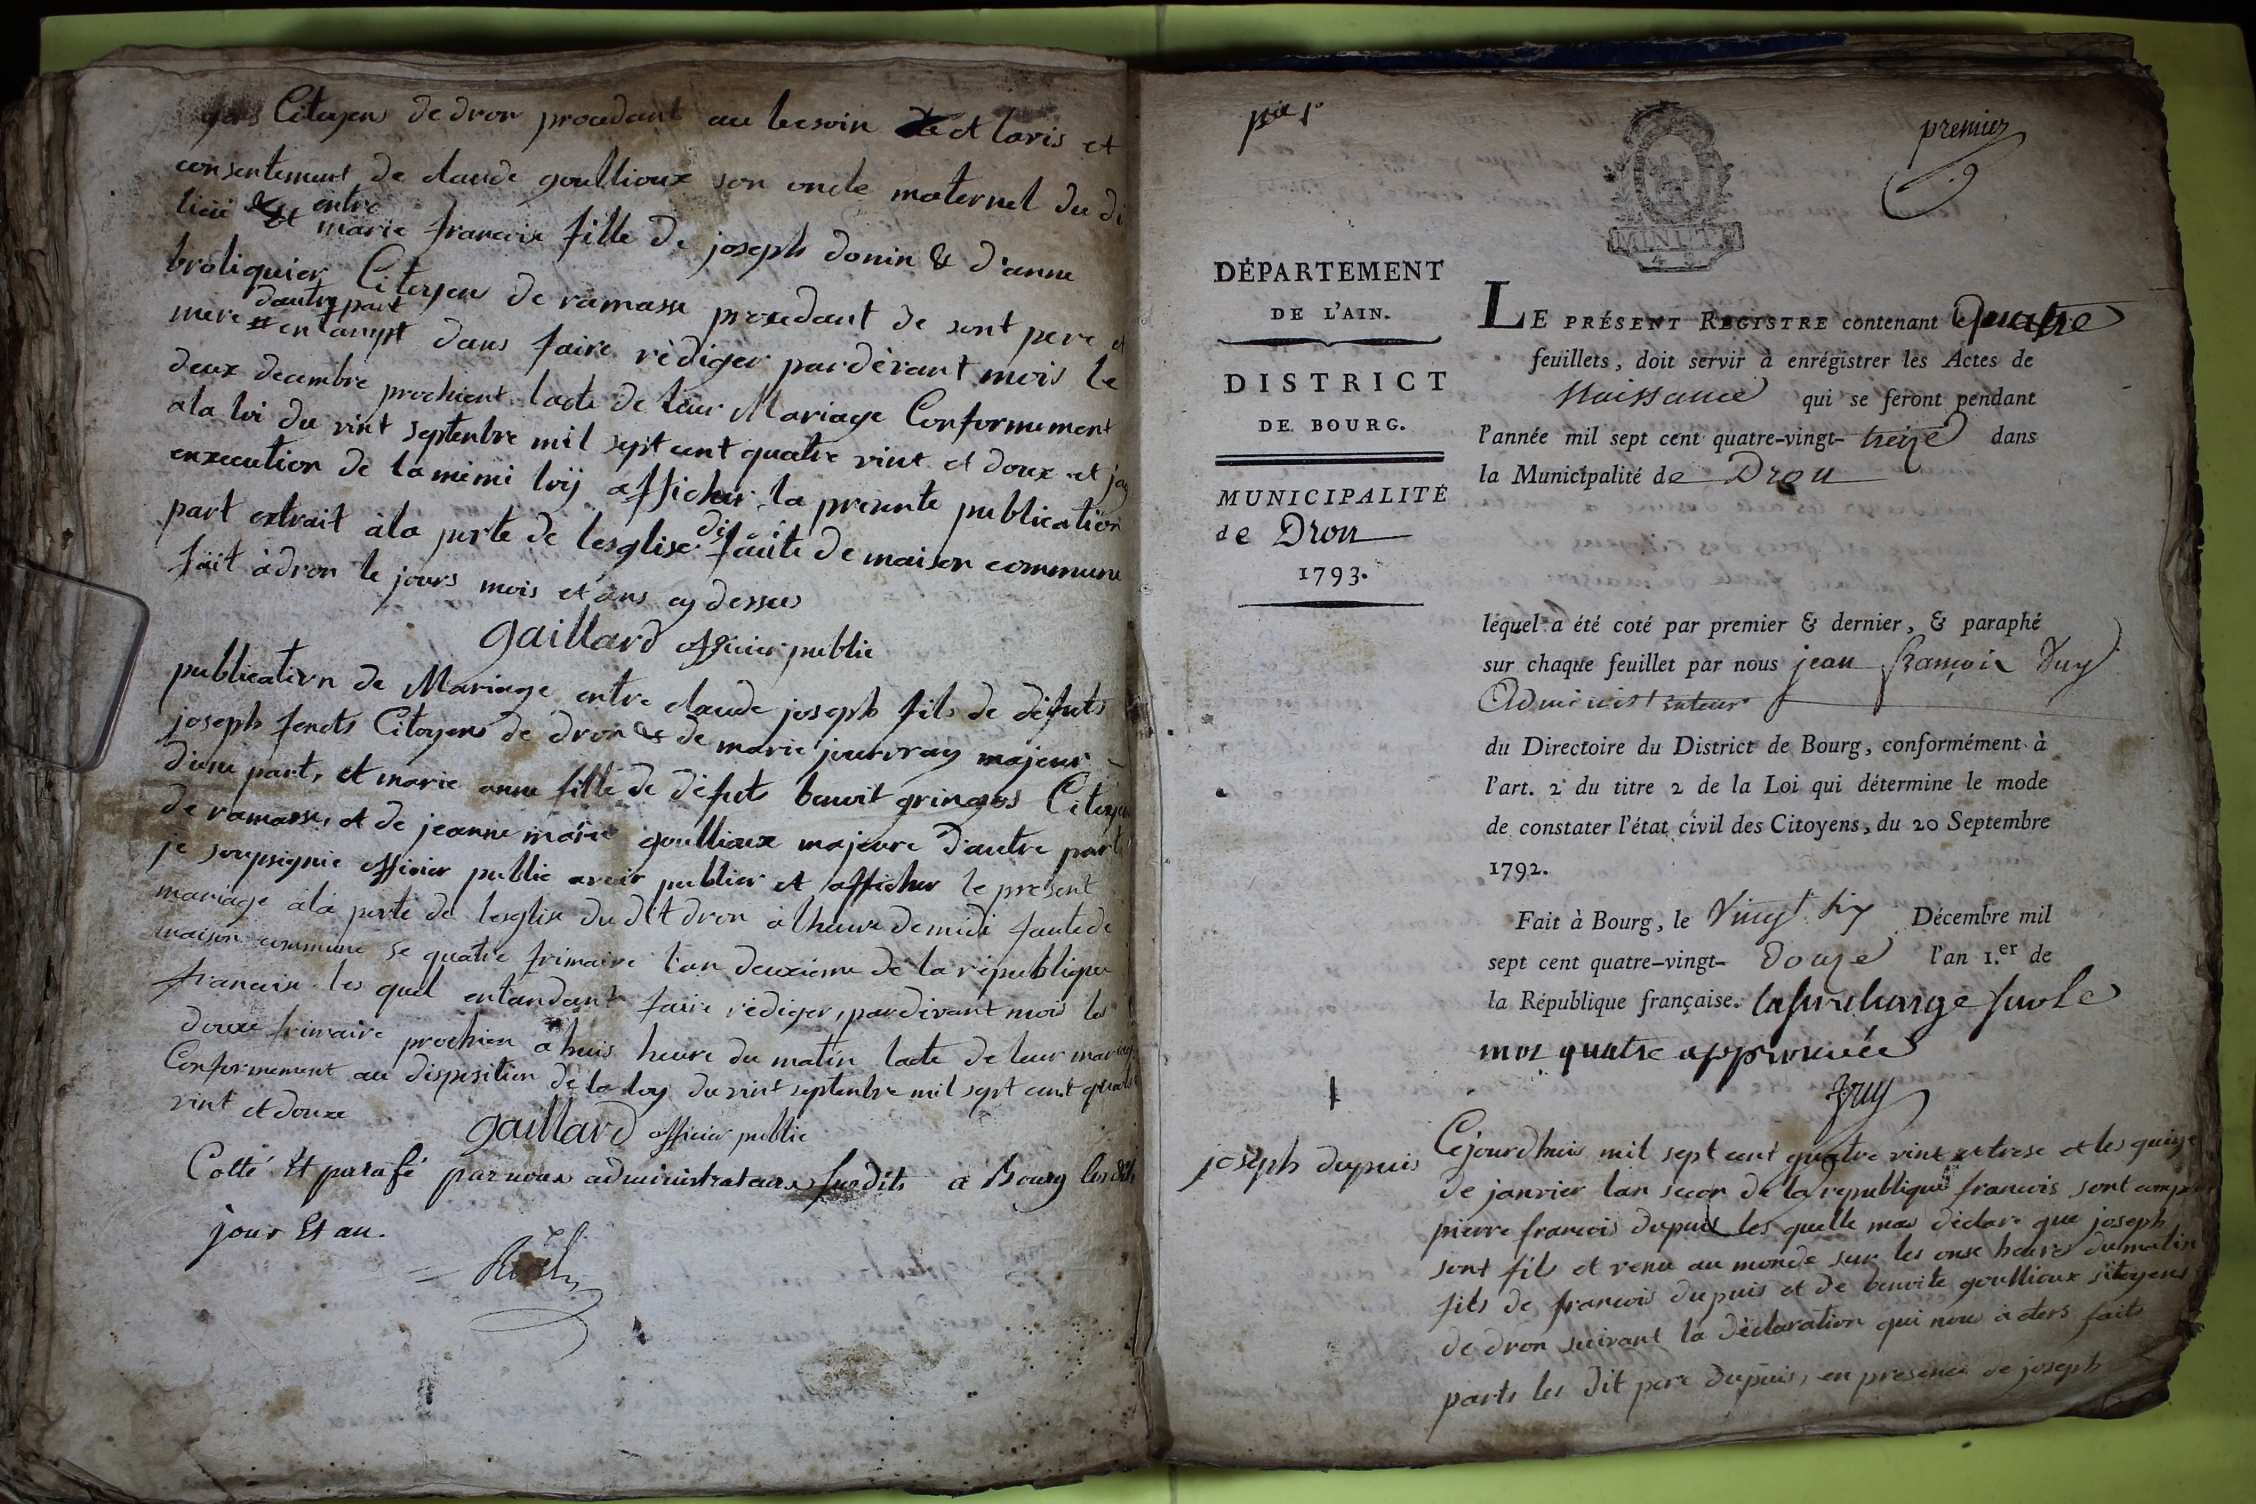 Citoyens de dron procedant au besoin et lavis et
consentement de claude goullioux son oncle maternel du di
lieu et entre marie francoise fille de joseph donin & d'anne
broliquier Citoyens de ramasse procedant de sont pere et
mere dautre part dans faire rèdiger pardèvant mois le
deux decembre prochient lacte de leur Mariage Conformement
ala loi du vint septenbre mil sept cent quatre vint et doux et jay
enxecution de la mèmi loÿ afficher la presente publication
part extrait à la porte de lesglise dit fauite de maison commune
fait à dron le jours mois et ans cy dessus
gaillard officier public
publication de Mariage entre claude joseph fils de dèfuts
joseph Citoyens de dron & de marie jourvray majeur
dune part, et marie anne fille de dèfuts benoit gringos Citoyen
de ramasse, et de jeanne marie goullioux majeure d'autre part
je soupsignie officier public avoir publier et afficher le present
mariage à la porte de lesglise du dit dron a lheure de midi faute de
maison commune se quatre frimaire l'an deuxieme de la rèpublique
francaise les quel entandant faire rèdiger, pardevant mois les
douxe frimaire prochien a huis heure du matin lacte de leur mariage
Conformement au disposition de la loy du vint septenbre mil sept cent quatre
vint et douxe
gaillard officier public
Cotté Et parafé par nous administrateurs Susdits a Bourg les dits
jour Et an.
premier
MINUTE
DÉPARTEMENT
DE L'AIN.
DISTRICT
DE BOURG.
MUNICIPALITÉ
de Dron
1793.
LE PRÉSENT REGISTRE contenant quatre
feuillets, doit servir à enrégistrer les Actes de
Naissance qui se feront pendant
l'année mil sept cent quatre-vingt- treize dans
la Municipalité de Dron
lequel a été coté par premier & dernier, & paraphé
sur chaque feuillet par nous jean françois Duy
Administrateur
du Directoire du District de Bourg, conformément à
l'art. 2 du titre 2 de la Loi qui détermine le mode
de constater l'état civil des Citoyens, du 20 Septembre
1792.
Fait à Bourg, le Vingt six Décembre mil
sept cent quatre-vingt- Douze l'an 1.er de
la République française. la surcharge sur le
mot quatre approuvée
joseph dupuis
Cejourdhuis mil sept cent quatre vint et trese et les quinze
de janvier lan secon de la republique francois sont comp
pierre francois dupuis les quelle mas dèclare que joseph
sont fils et venu au monde sur les onse heures du matin
fils de francois dupuis et de benoite goullioux sitoyens
de dron suivant la dèclaration qui nous à eters faits
parts les dit pere dupuis, en presence de joseph